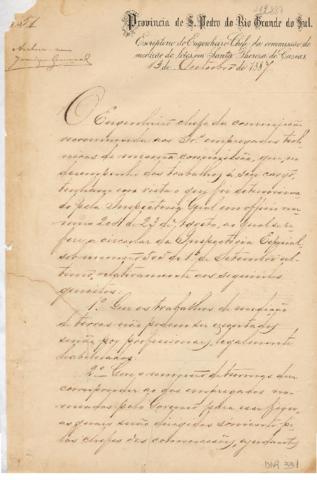 Provincia de S. Pedro do Rio Grande do Sul.
Escriptorio do Engenheiro Chefe da commissão de
medição de lotes em Santa Thereza de Caxias
13 de Outubro de 1887
O Engenheiro chefe da commissão
recommenda aos Srs. empregados tech-
nicos da mesma commissão, que, no
desempenho dos trabalhos a seu cargo,
tenhão em vista o que foi determinado
pela Inspectoria Geral em officio nu-
mero de 23 de Agosto, ao qual se re-
fere a circular da Inspectoria Especial,
sob numero de 1º de Setembro ul-
timo, relativamente aos seguintes
quesitos:
1º Que os trabalhos de medição
de terras não podem ser executados
senão por profissionaes, legalmente
habilitados:
2º Que o numero de turmas deve
corresponder ao dos empregados no-
meados pelo Governo para esse fim,
as quaes serão dirigidas somente pe-
los chefes das commissões, ajudantes
DMR 331